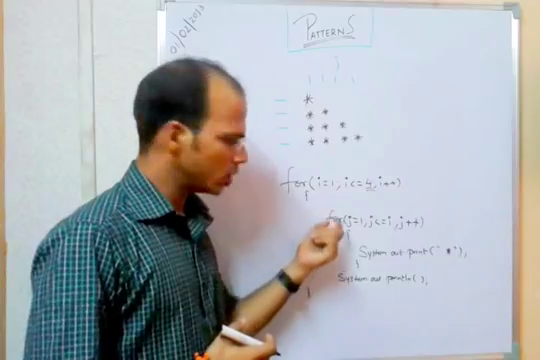 01/02/2013
PATTERNS
*
* *
* * *
* * * *
for(i=1, i<=4, i++)
{
for(j=1, j<=i, j++)
{
System out print(" * "),
}
System out println( ),
}